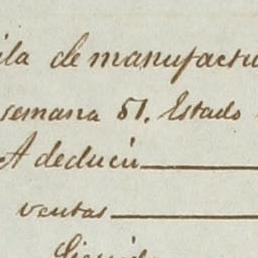 ila de manufactu
semana 51. Estado
A deducir
ventas